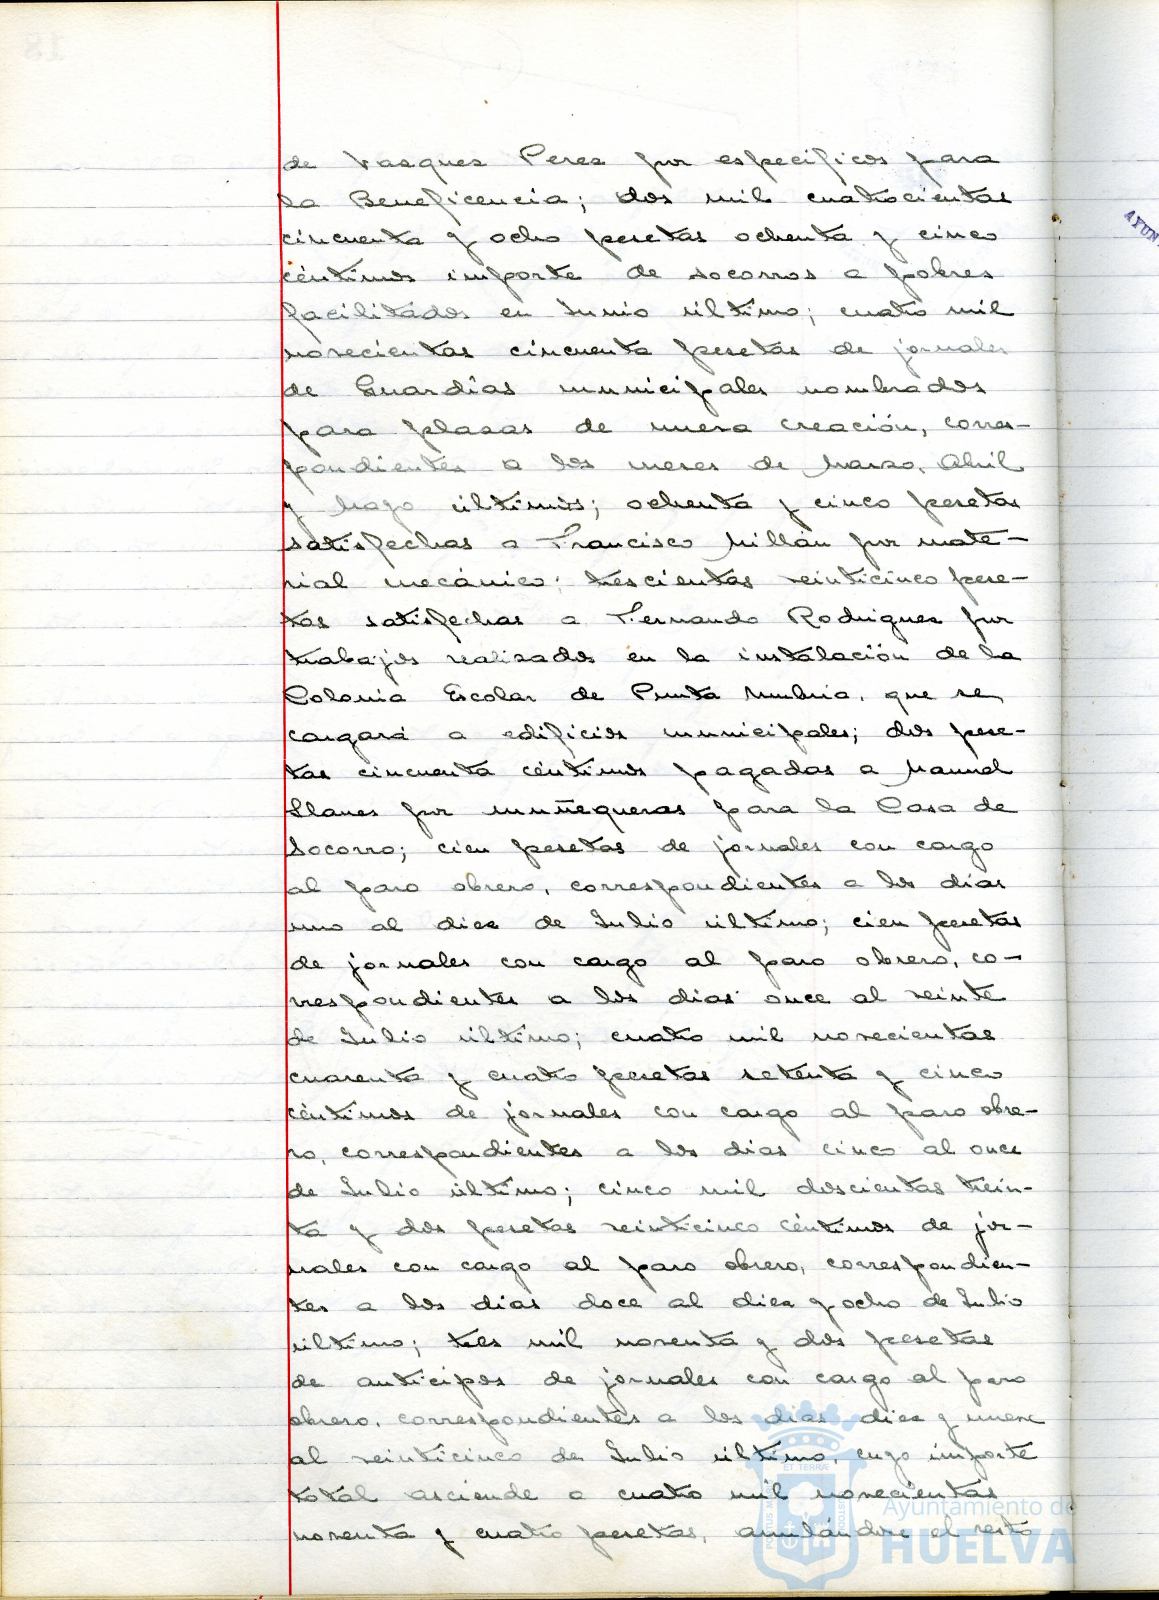 de Vasques Peres por específicos para
la Beneficencia; dos mil cuatrocientas
cincuenta y ocho pesetas ochenta y cinco
céntimos importe de socorros a pobres
facilitados en Junio último; cuatro mil
novecientas cincuenta pesetas de jornales
de Guardias municipales nombrados
para plasas de nueva creación, corres-
pondientes a los meses de Marzo, Abril
y Mayo últimos; ochenta y cinco pesetas
satisfechas a Francisco Millán por mate-
rial mecánico; trescientas veinticinco pese-
tas satisfechas a Fernando Rodrigues por
trabajos realisados en la instalación de la
Colonia Escolar de Punta Umbria, que se
cargará a edificios municipales; dos pese-
tas cincuenta céntimos pagadas a Manuel
Llanes por muñequeras para la Casa de
Socorro; cien pesetas de jornales con cargo
al paro obrero, correspondientes a los dias
uno al dies de Julio último; cien pesetas
de jornales con cargo al paro obrero, co-
rrespondientes a los dias once al veinte
de Julio último; cuatro mil novecientas
cuarenta y cuatro pesetas setenta y cinco
céntimos de jornales con cargo al paro obre-
ro, correspondientes a los dias cinco al once
de Julio último; cinco mil doscientas trein-
ta y dos pesetas veinticinco céntimos de jor-
nales con cargo al paro obrero, correspondien-
tes a los dias doce al dies y ocho de Julio
último; tres mil noventa y dos pesetas
de anticipos de jornales con cargo al paro
obrero, correspondientes a los dias dies y nueve
al veinticinco de Julio último, cuyo importe
total asciende a cuatro mil novecientas
noventa y cuatro pesetas, anulándose el resto
Ayuntamiento de
HUELVA